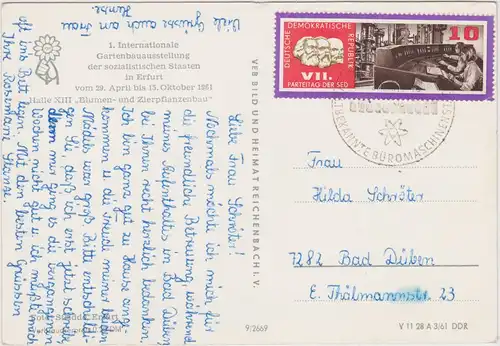 1. Internationale
Gartenbauausstellung
der sozialistischen Staaten
in Erfurt
vom 29. April bis 15. Oktober 1961
Halle XIII „Blumen- und Zierpflanzenbau“
Liebe Frau Schröter!
Nochmals möchte ich mich für
die freundliche Betreuung, während
meines Aufenthaltes in Bad Düben
bei Ihnen recht herzlich bedanken.
Ich bin ganz gut zu Hause ange-
kommen u. die Freude meiner beiden
Mädels war groß. Bitte entschuldi-
gen Sie, daß ich erst jetzt schreibe,
denn mir ging es die vergangenen
Wochen nicht gut u. ich mußte mich
oft ins Bett legen. Mit den besten Grüssen
Ihre
Viele Grüsse auch an Frau
VEB BILD UND HEIMAT REICHENBACH I. V.
9/2669
V 11 28 A 3/61 DDR
DEUTSCHE DEMOKRATISCHE REPUBLIK
VII.
PARTEITAG DER SED
10
BÜROMASCHINEN
Frau
Hilda Schröter
7282 Bad Düben
E. Thälmannstr. 23